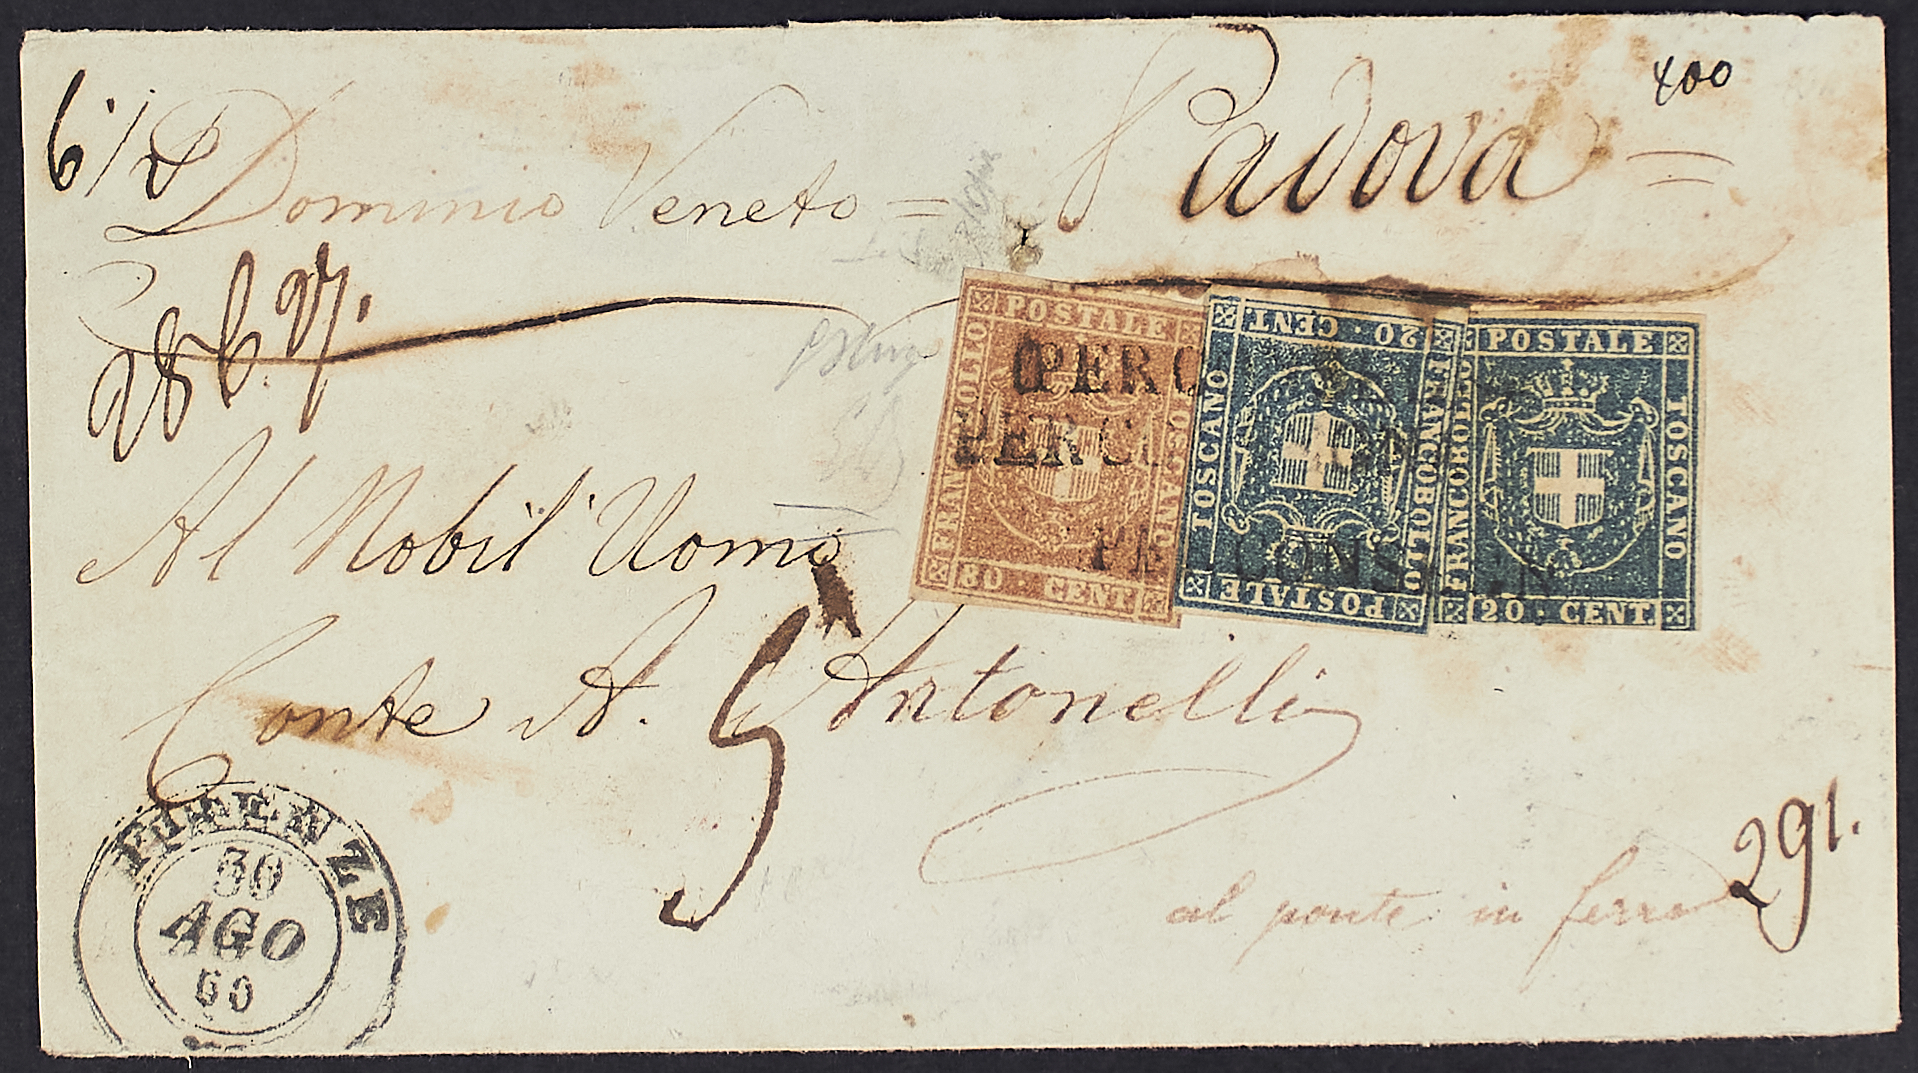 400
6/
Dominio Veneto = Padova =
28 6. 27.
Al Nobil' Uomo
Conte A. Antonelli
5
al ponte in ferro
291.
POSTALE
FRANCOBOLLO
TOSCANO
80 · CENT.
PER C
PER C
20 · CENT
TOSCANO
FRANCOBOLLO
POSTALE
CONS
POSTALE
FRANCOBOLLO
TOSCANO
20 · CENT.
FIRENZE
30
AGO
60